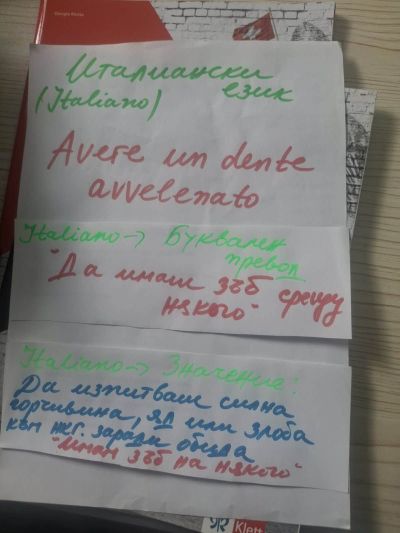 Италиански
език
(Italiano)
Avere un dente
avvelenato
Italiano → Буквален
превод
"Да имаш зъб срещу
някого"
Italiano → Значение:
Да изпитваш силна
горчивина, яд или злоба
към нкг. заради обида
"имам зъб на някого"
Klett